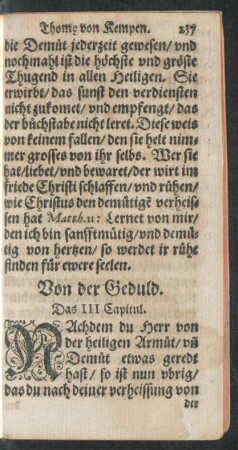 Thomę von Kempen. 237
die Demůt jederzeit gewesen/ vnd
nochmahl ist die höchste vnd gröste
Thugend in allen Heiligen. Sie
erwirbt/ das sunst den verdiensten
nicht zukomet/ vnd empfengt/ das
der bůchstabe nicht leret. Diese weis
von keinem fallen/ den sie helt nim-
mer grosses von ihr selbs. Wer sie
hat/ liebet/ vnd bewaret/ der wirt im
friede Christi schlaffen/ vnd růhen/
wie Christus den demůtigē verheis-
sen hat Matth. 11: Lernet von mir/
den ich bin sanfftmůtig/ vnd demů-
tig von hertzen/ so werdet ir růhe
finden für ewere seelen.
Von der Geduld.
Das III Capitul.
NAchdem du Herr von
der heiligen Armůt/ vñ
Demůt etwas geredt
hast/ so ist nun vbrig/
das du nach deiner verheissung von
der